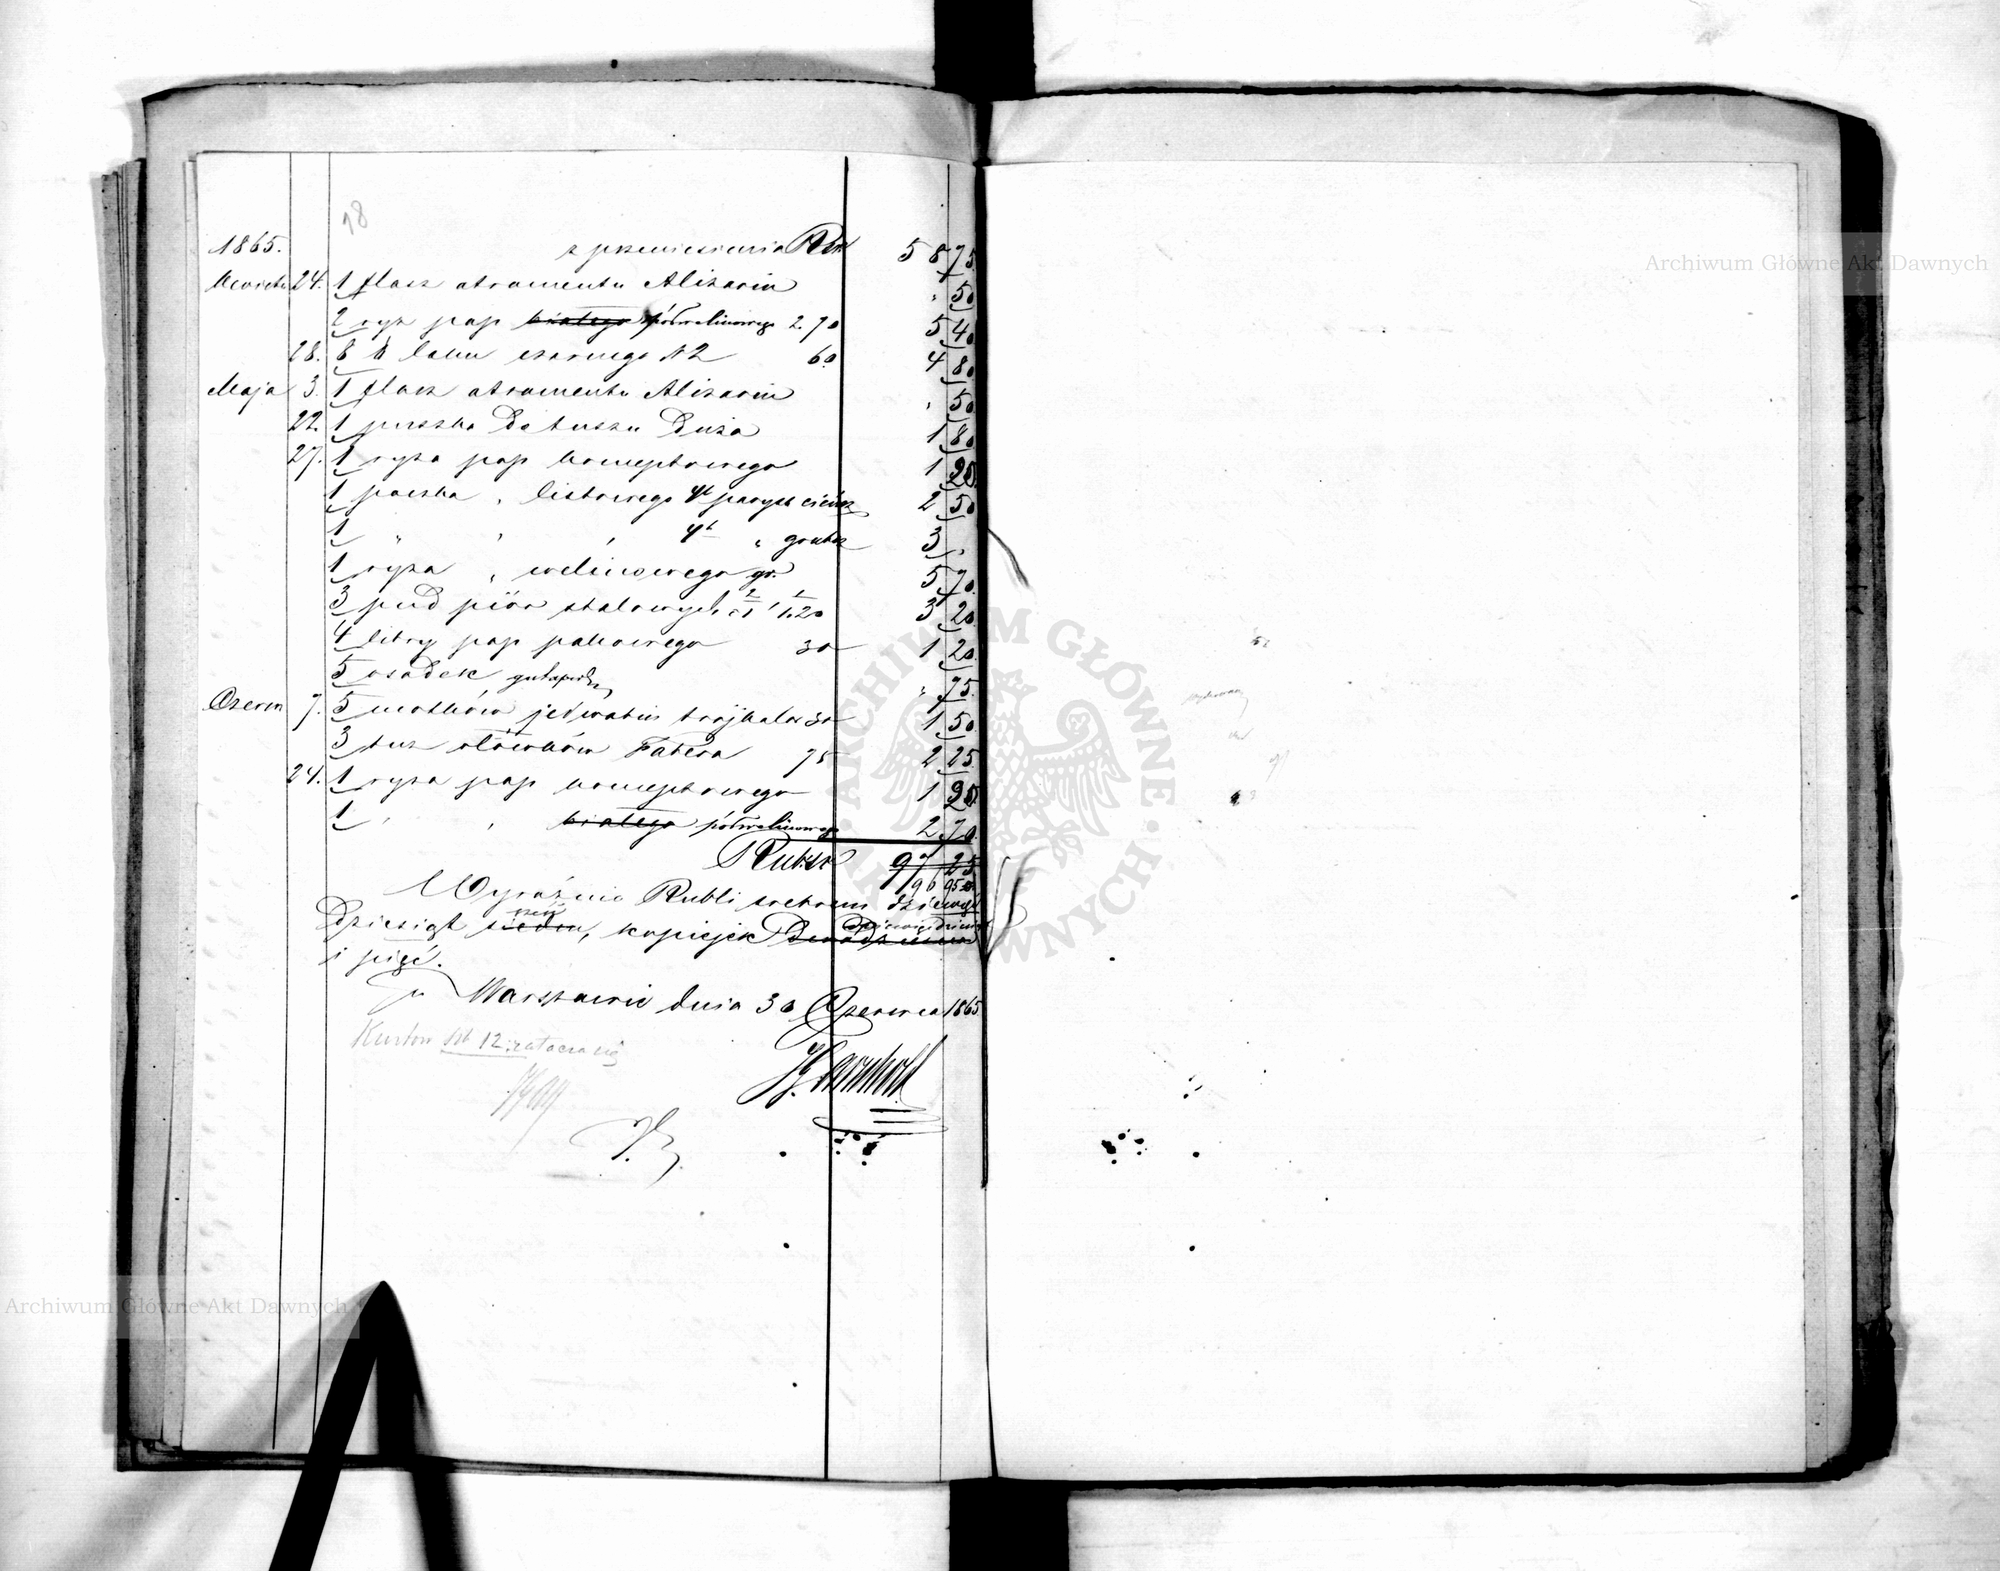 18
1865. z przeniesienia Rsr 58 75
Marca 24. 1 flasz atramentu Alizarin " 50
2 ryz pap białego półwelinowego 2.70 5 40
28. 8 ℔ laku czarnego N2 60 4 80
Maja 3. 1 flasz atramentu Alizarin " 50
22. 1 puszka Do tuszu Duża 1 80
27. 1 ryza pap konceptowego 1 20
1 paczka " listowego 4t parysk cieńsz 2 50
1 " " " 4t " grubsz 3 "
1 ryza " welinowego gr. 5 70
3 pud piór stalowych 1.20 3 20
4 libry pap pakowego 30 1 20
5 osadek gutaperk " 75
Czerw 7. 5 motków jedwabiu trójkolor 30 1 50
3 tuz ołówków Fabera 75 2 25
24. 1 ryza pap konceptowego 1 20
1 " " białego półwelinowego 2 70
Rubsr 97 25
96 95
Wyraźnie Rubli srebrem dziewięć
Dziesiąt siedm sześć, kopiejek Dwadzieścia dziewięćdziesiąt
i pięć.
w Warszawie dnia 30 Czerwca 1865
12
Archiwum Główne Akt Dawnych
Archiwum Główne Akt Dawnych
ARCHIWUM GŁÓWNE AKT DAWNYCH